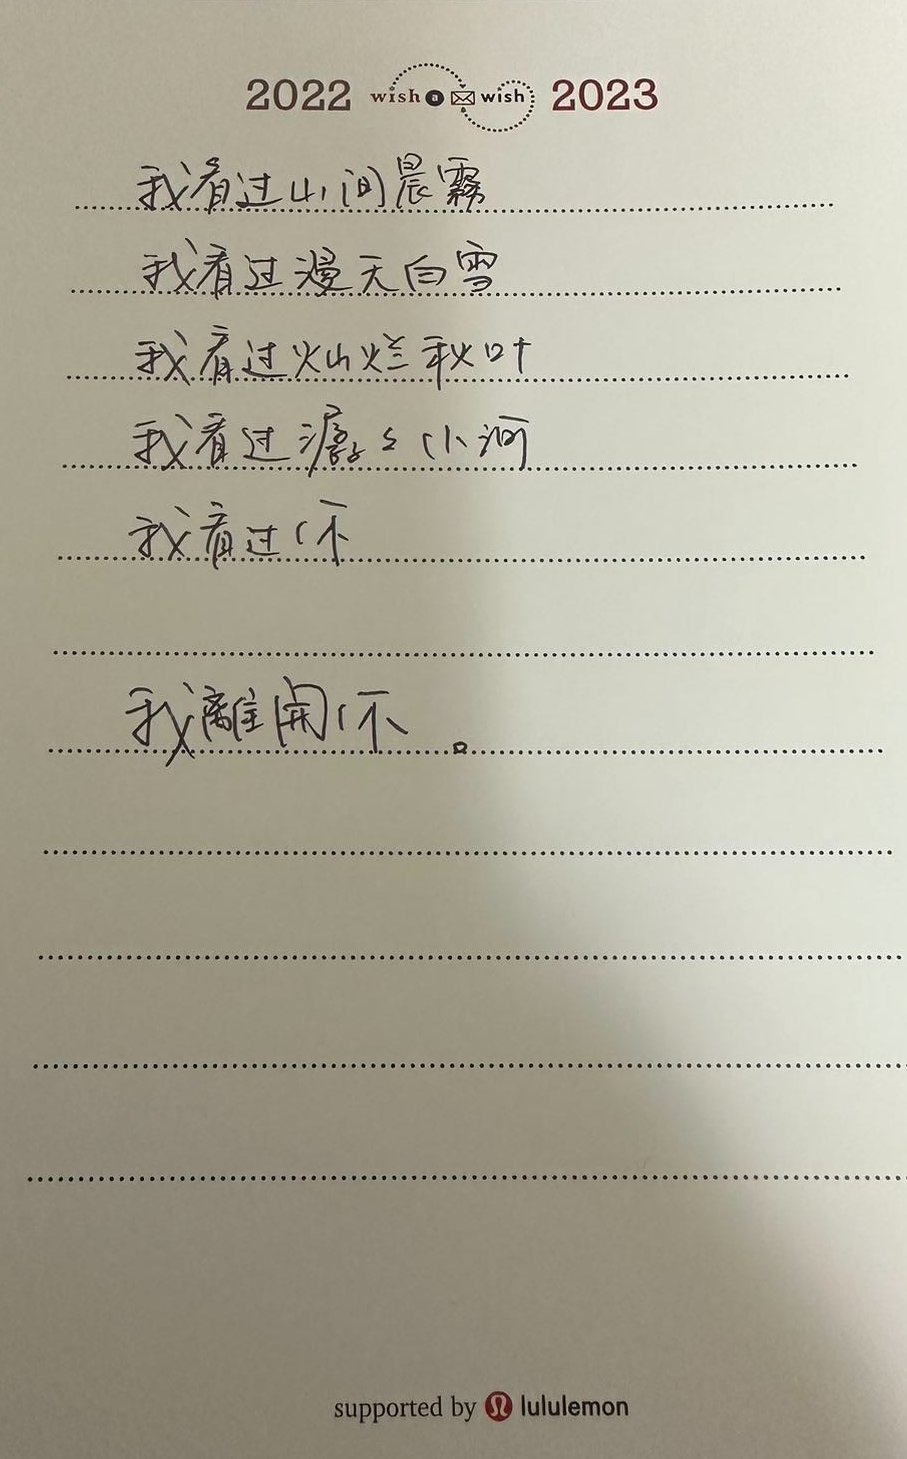 2022 wish a wish 2023
我看过山间晨霧
我看过漫天白雪
我看过灿烂秋叶
我看过潺々小河
我看过你
我離開你。
supported by lululemon